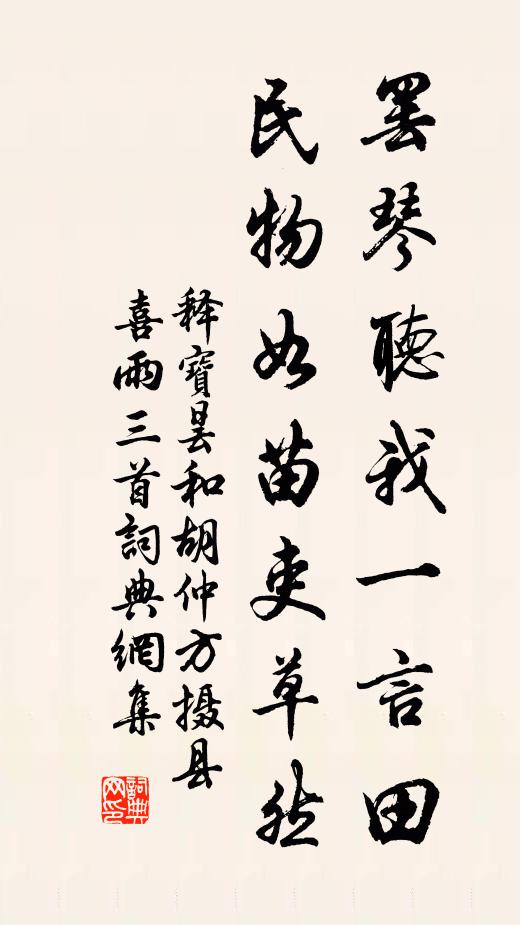 罢琴聽我一言田
民物如苗吏草然
释寶昙和胡仲方摄县
喜雨三首詞典網集
詞典网印